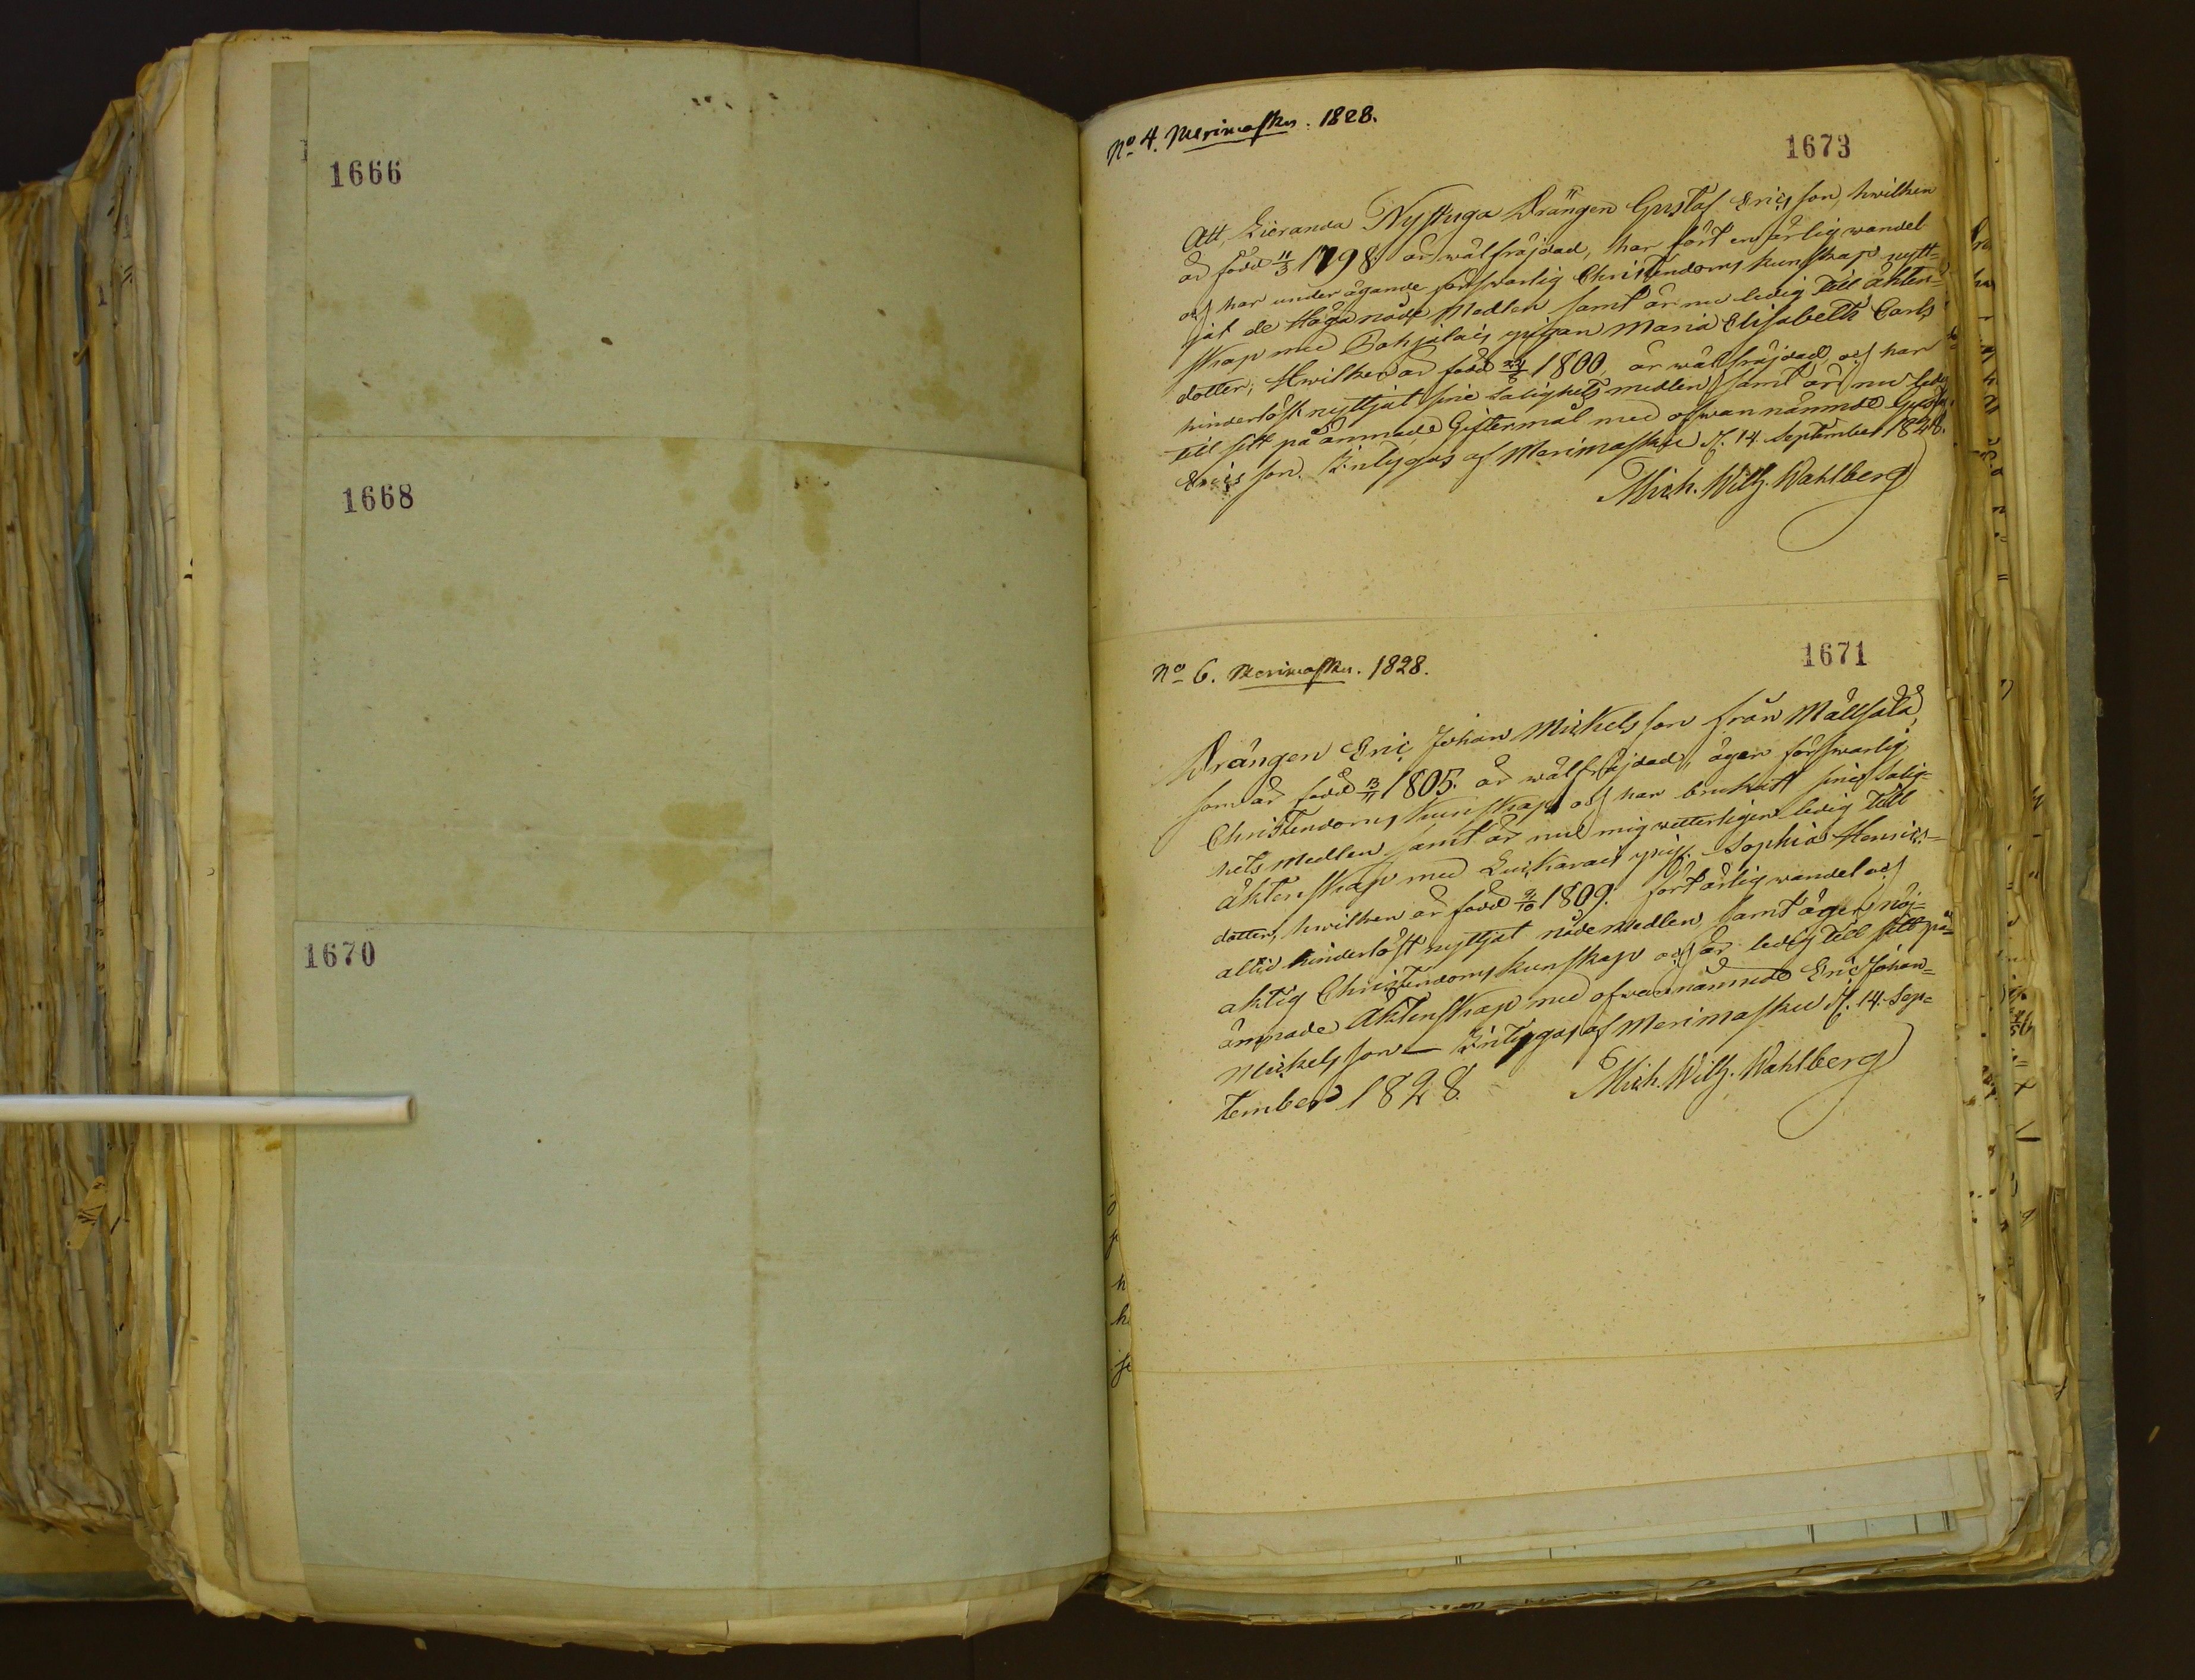 1666
1668
1670
No 4. Merimasku. 1828.
1673
Att Lieranda Nystuga Drängen Gustaf Ericsson, hwilken
är född 11/3 1798. är wälfräjdad, har fört en ärlig wandel
och har under ägande förswarlig Christendoms kunskap nytt-
jat de Höga nåde Medlen samt är nu ledig till äkten-
skap med pigan Maria Elisabeth Carls
dotter, Hwilken är född 1800, är wälfräjdad, och har
hinderlöst nyttjat sine salighets medlen samt är nu ledig
till sitt påämnade Giftermål med ofwannämnde Gustaf
Ericsson. Intygas af Merimasku d. 14 September 1828.
Mich. Wilh. Wahlberg
No 6. Merimasku. 1828.
1671
Drängen Eric Johan Mickelsson från Mällsälä,
som är född 13/11 1805. är wälfräjdad, äger förswarlig
Christendoms Kunskap och har brukat sine Salig-
hets Medlen samt är nu mig wetterligen ledig till
äktenskap med pig. Sophia Henrics-
dotter, hwilken är född 9/10 1809. fört ärlig wandel och
altid hinderlöst nyttjat nåde Medlen, samt äger nöj-
aktig Christendoms kunskap och är ledig till sitt på-
ämnade Äktenskap med ofwannämnde Eric Johan
Mickelsson — Intygas af Merimasku d. 14. Sep-
tember 1828.
Mich. Wilh. Wahlberg